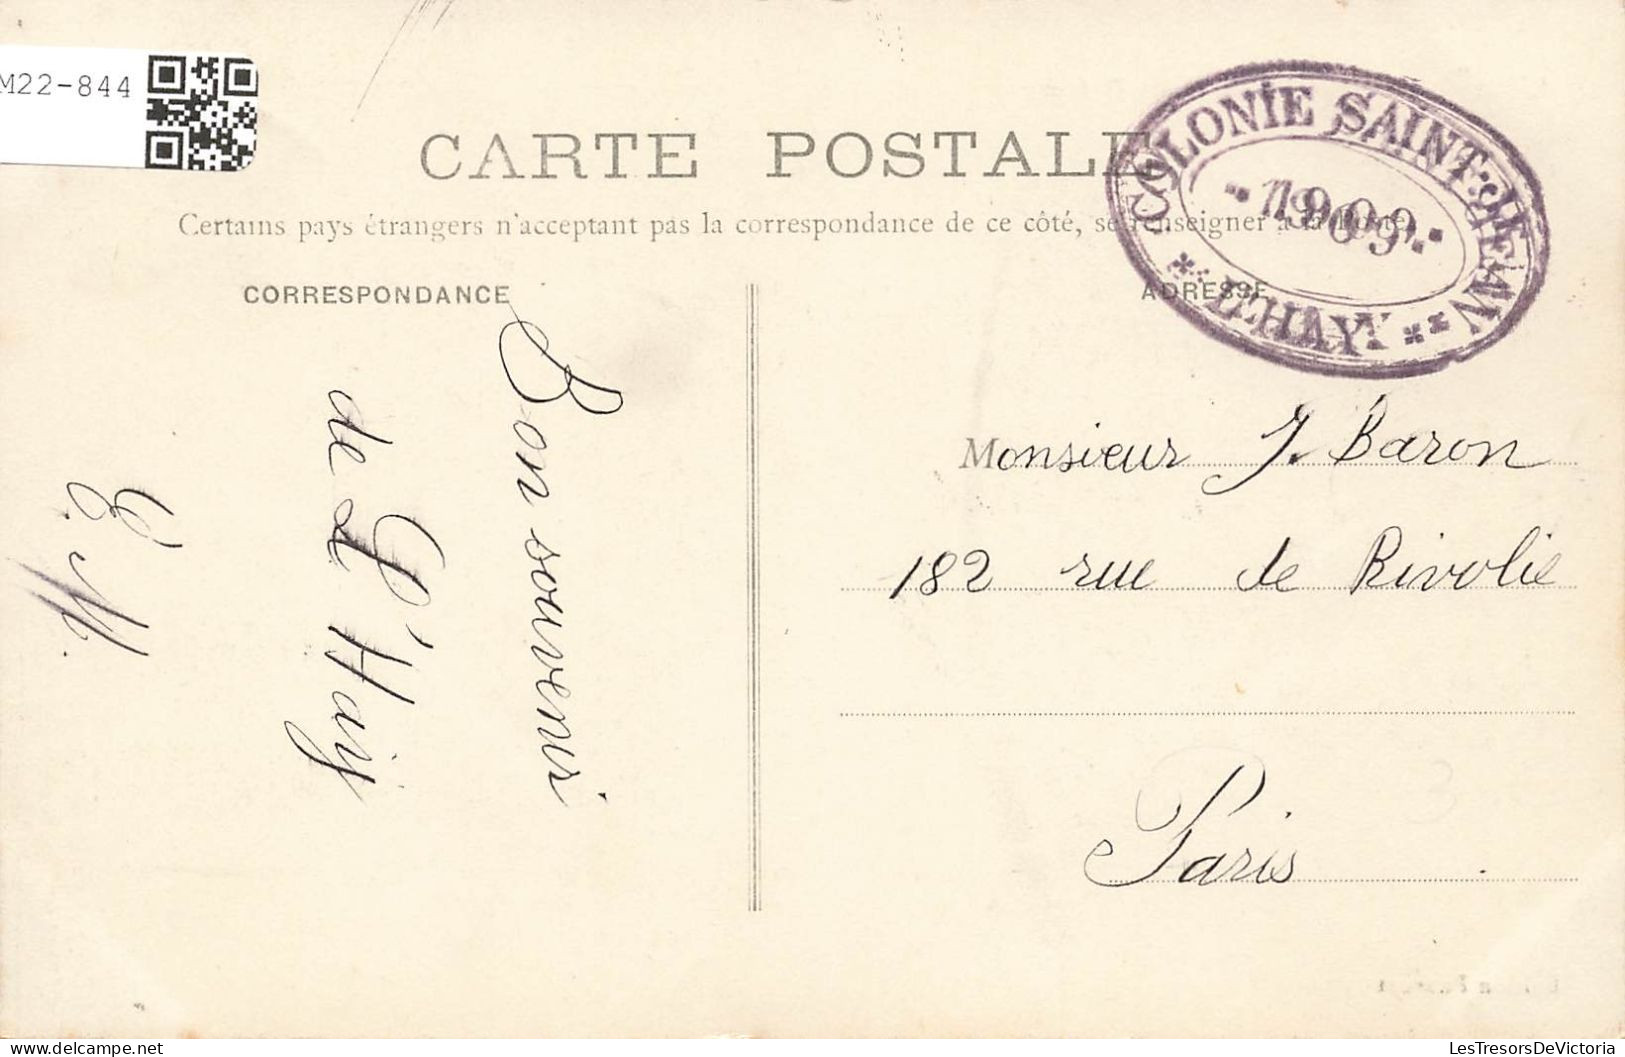 M22-844
CARTE POSTALE
Certains pays étrangers n'acceptant pas la correspondance de ce côté, se renseigner à la Poste.
CORRESPONDANCE
ADRESSE
COLONIE SAINT-JEAN
1909
L'HAY
Bon souvenir
de L'Haÿ
E. M.
Monsieur J. Baron
182 rue de Rivolie
Paris
LesTresorsDeVictoria